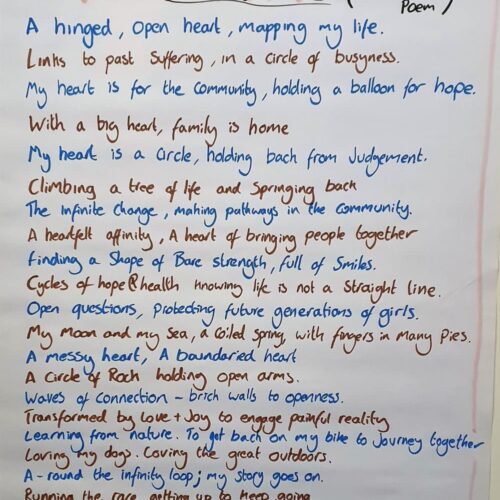 Poem )
A hinged, open heart, mapping my life.
Links to past suffering, in a circle of busyness.
My heart is for the community, holding a balloon for hope.
With a big heart, family is home
My heart is a circle, holding back from Judgement.
Climbing a tree of life and Springing back
The Infinite Change, making pathways in the community.
A heartfelt affinity, A heart of bringing people together
Finding a Shape of Bare strength, full of Smiles.
Cycles of hope @ health knowing life is not a straight line.
Open questions, protecting future generations of girls.
My Moon and my Sea, a coiled spring, with fingers in Many Pies.
A messy heart, A boundaried heart
A Circle of Rock holding open arms.
Waves of connection - brick walls to openness.
Transformed by Love + Joy to engage painful reality
Learning from nature. To get back on my bike to Journey together
Loving my dogs. Loving the great outdoors.
A-round the infinity loop; my story goes on.
Running the race, getting up to keep going